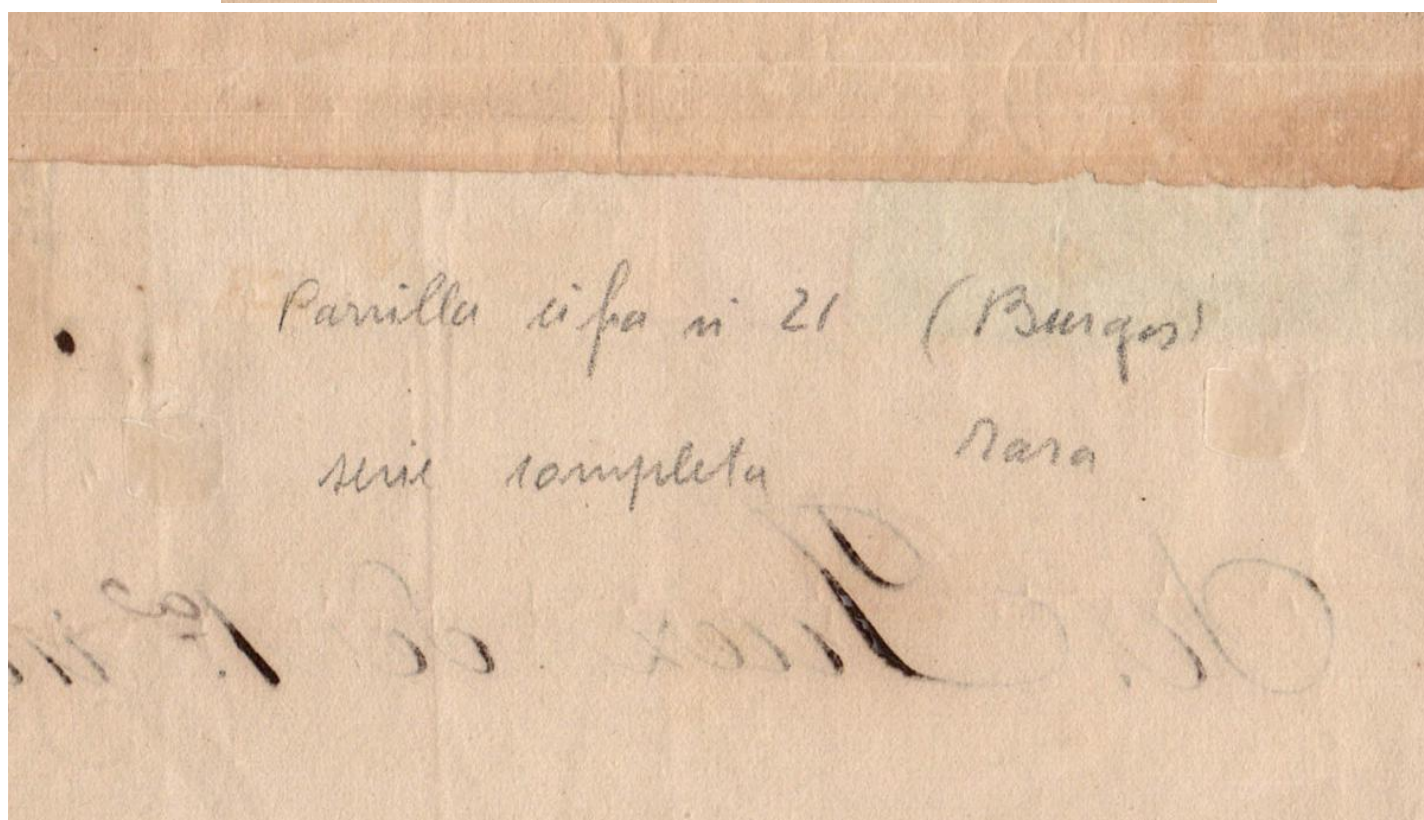 Parrilla cifra nº 21 (Burgos)
serie completa rara
Sr. Juez de 1ª